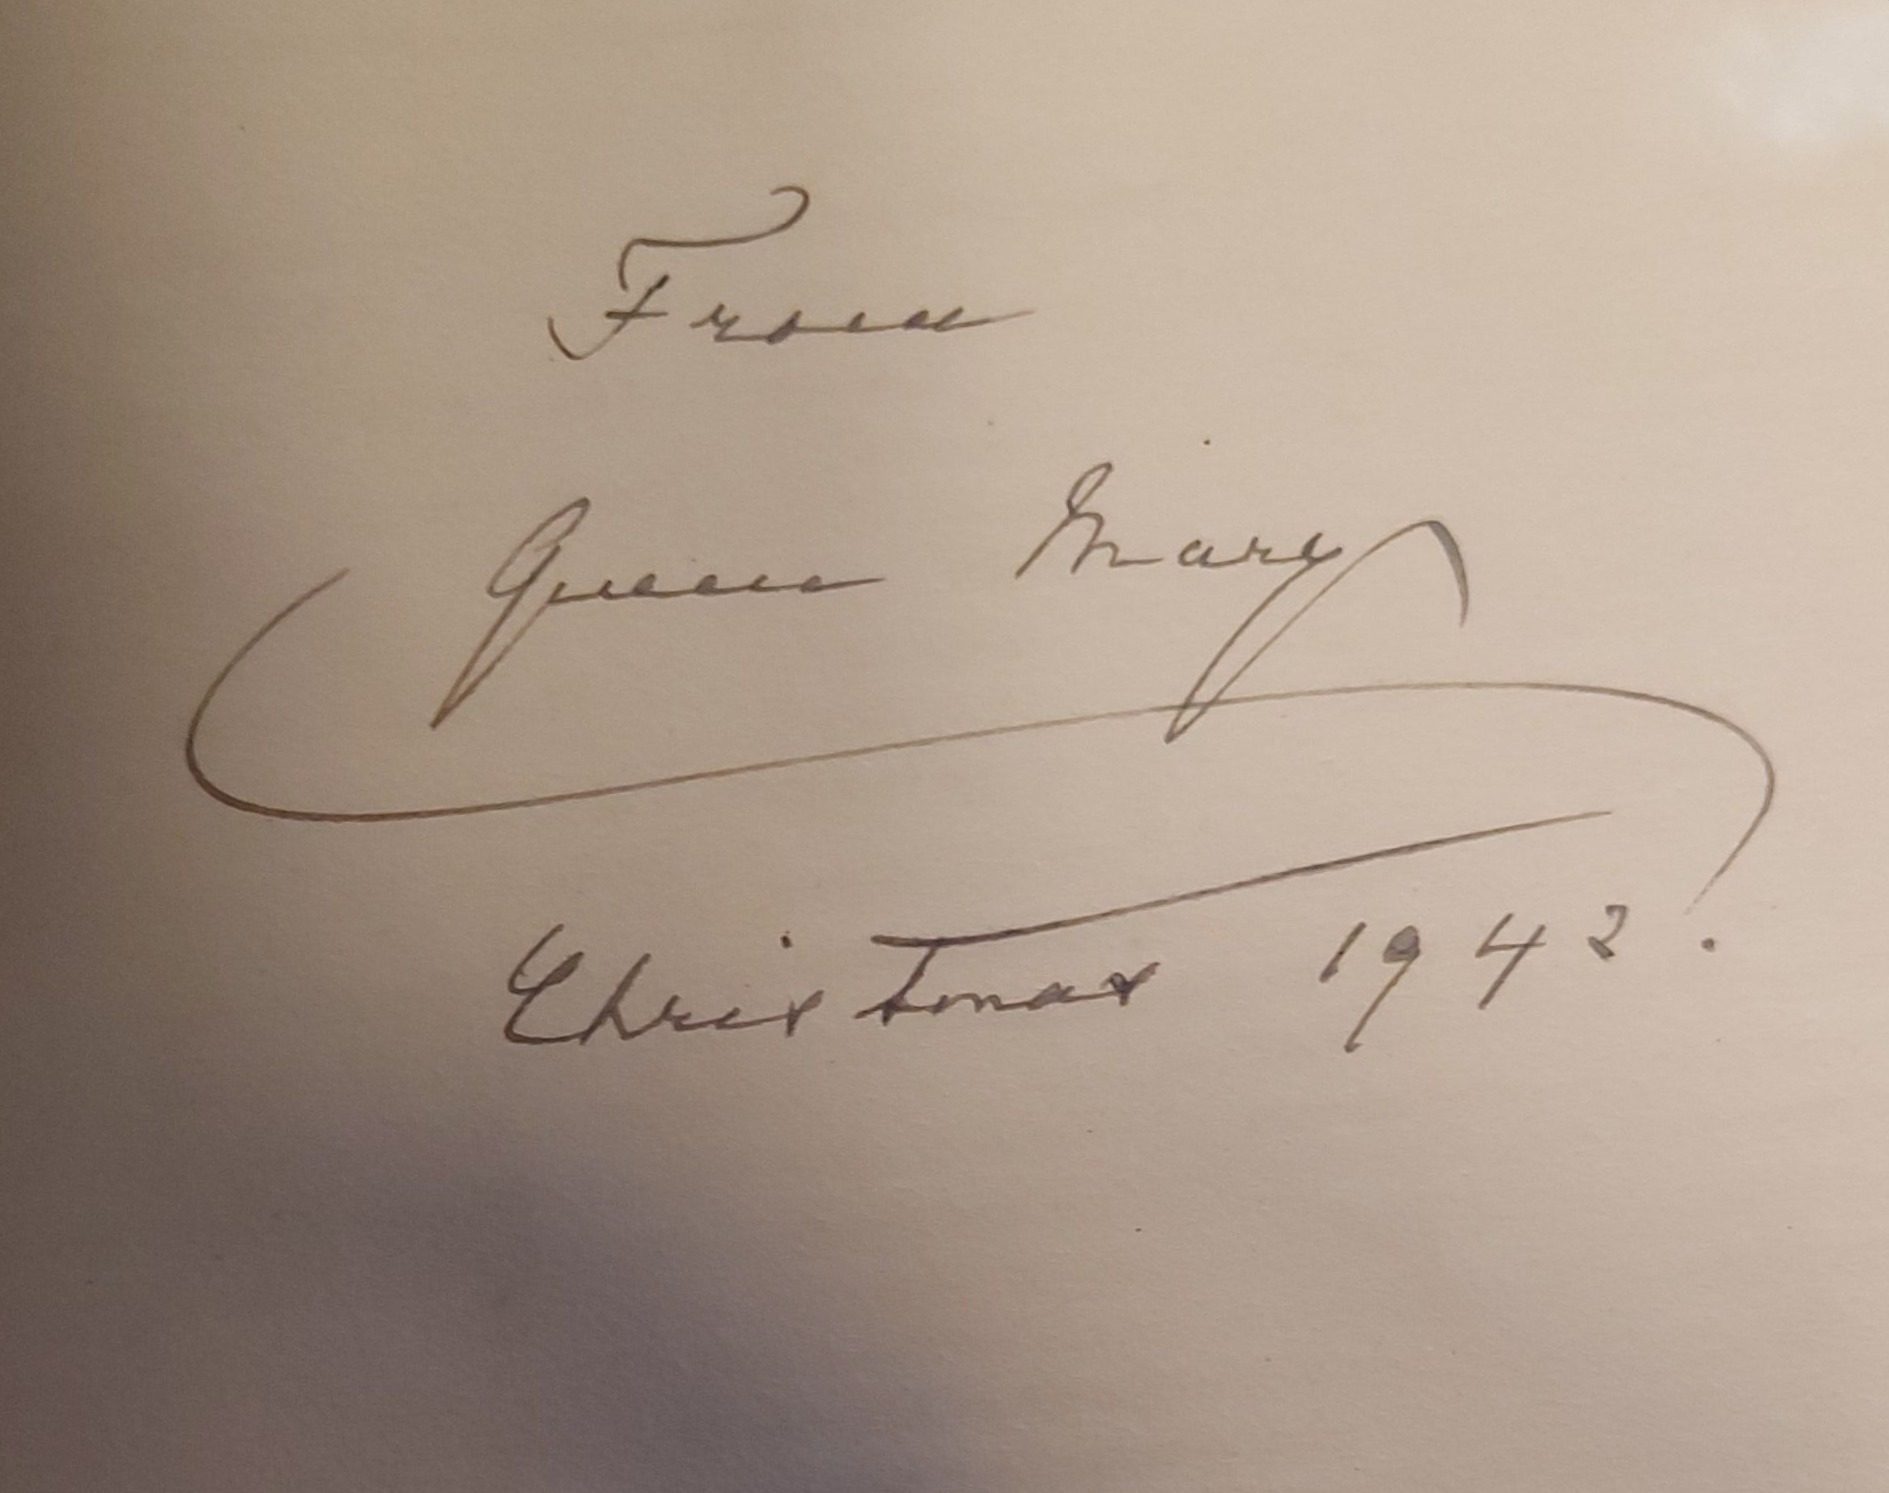 From
Queen Mary
Christmas 1942.